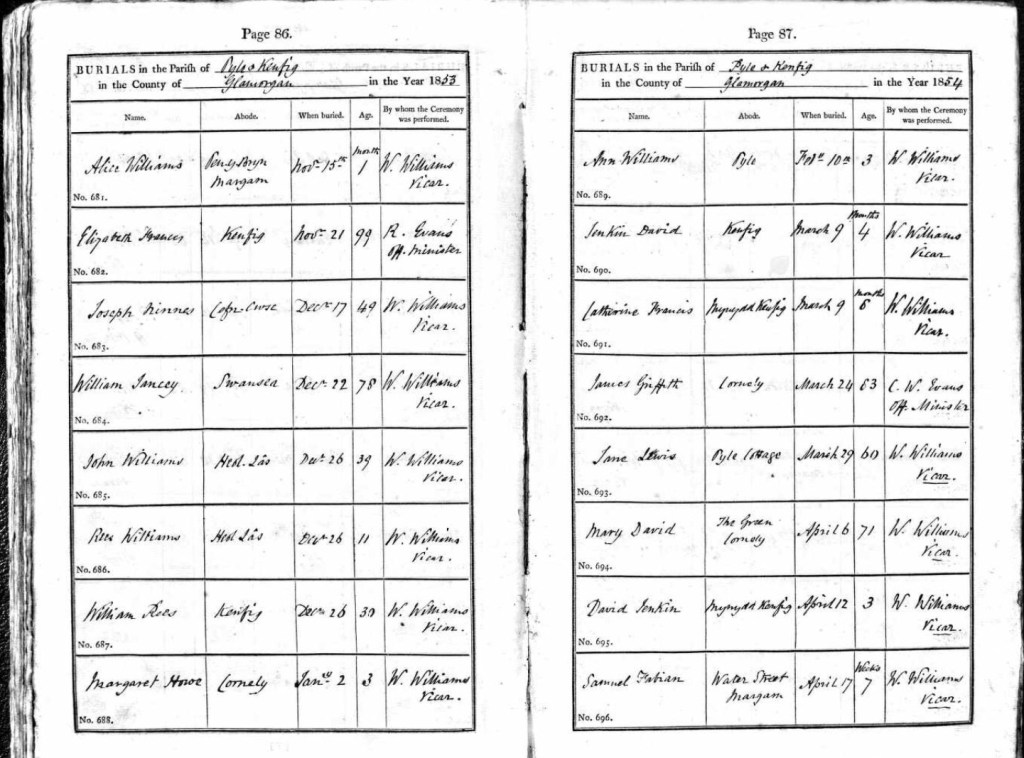 Page 86.
BURIALS in the Parish of Pyle & Kenfig
in the County of Glamorgan in the Year 1853
Name. Abode. When buried. Age. By whom the Ceremony was performed.
Alice Williams Penybryn Margam Novr. 15th 1 month W. Williams Vicar.
No. 681.
Elizabeth Francis Kenfig Novr. 21 99 R. Evans Off. Minister
No. 682.
Joseph Decr. 17 49 W. Williams Vicar.
No. 683.
William Swansea Decr. 22 78 W. Williams Vicar.
No. 684.
John Williams Heol Lâs Decr. 26 39 W. Williams Vicar.
No. 685.
Rees Williams Heol Lâs Decr. 26 11 W. Williams Vicar.
No. 686.
William Rees Kenfig Decr. 26 30 W. Williams Vicar.
No. 687.
Margaret Howe Cornely Jany. 2 3 W. Williams Vicar.
No. 688.
Page 87.
BURIALS in the Parish of Pyle & Kenfig
in the County of Glamorgan in the Year 1854
Name. Abode. When buried. Age. By whom the Ceremony was performed.
Ann Williams Pyle 10th 3 W. Williams Vicar.
No. 689.
Jenkin David Kenfig March 9 4 Months W. Williams Vicar
No. 690.
Catherine Francis Mynydd Kenfig March 9 months W. Williams Vicar.
No. 691.
James Griffith Cornely March 24 63 C. W. Evans Off. Minister
No. 692.
Jane Lewis Pyle Cottage March 29 60 W. Williams Vicar.
No. 693.
Mary David The Green Cornely April 6 71 W. Williams Vicar.
No. 694.
David Jenkin Mynydd Kenfig April 12 3 W. Williams Vicar.
No. 695.
Samuel Fabian Water Street Margam April 17 7 Weeks W. Williams Vicar.
No. 696.